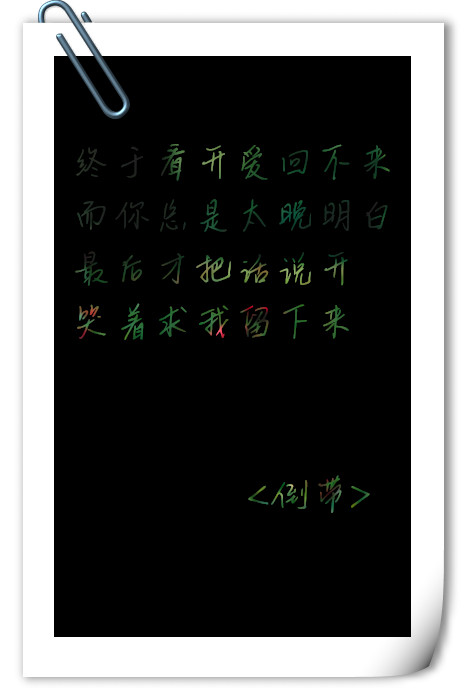 终于看开爱回不来
而你总是太晚明白
最后才把话说开
哭着求我留下来
<倒带>